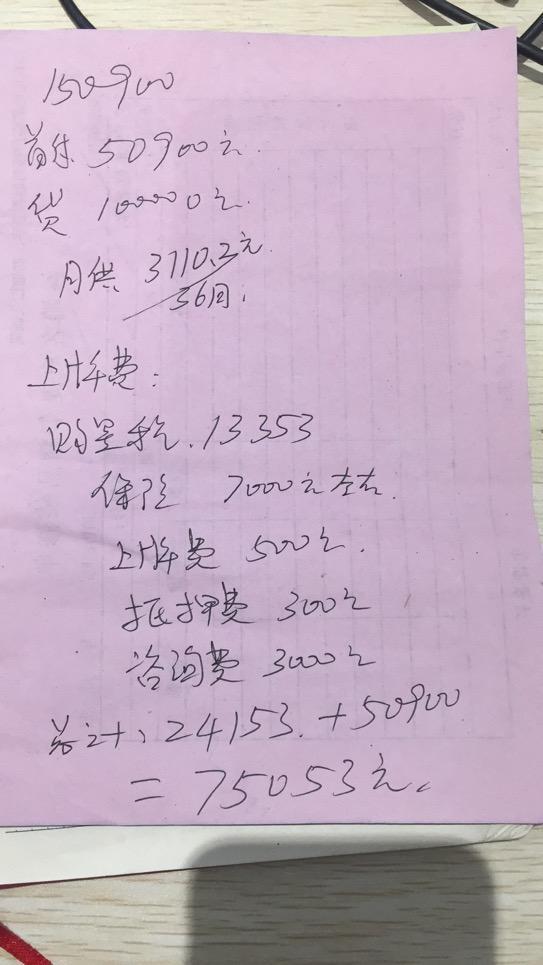 150900
首付 50900元.
贷 100000元.
月供 3110.2元
36回.
上牌费:
购置税.13353
保险 7000元左右.
上牌费 500元.
抵押费 300元
咨询费 3000元
总计: 24153.+50900
=75053元.